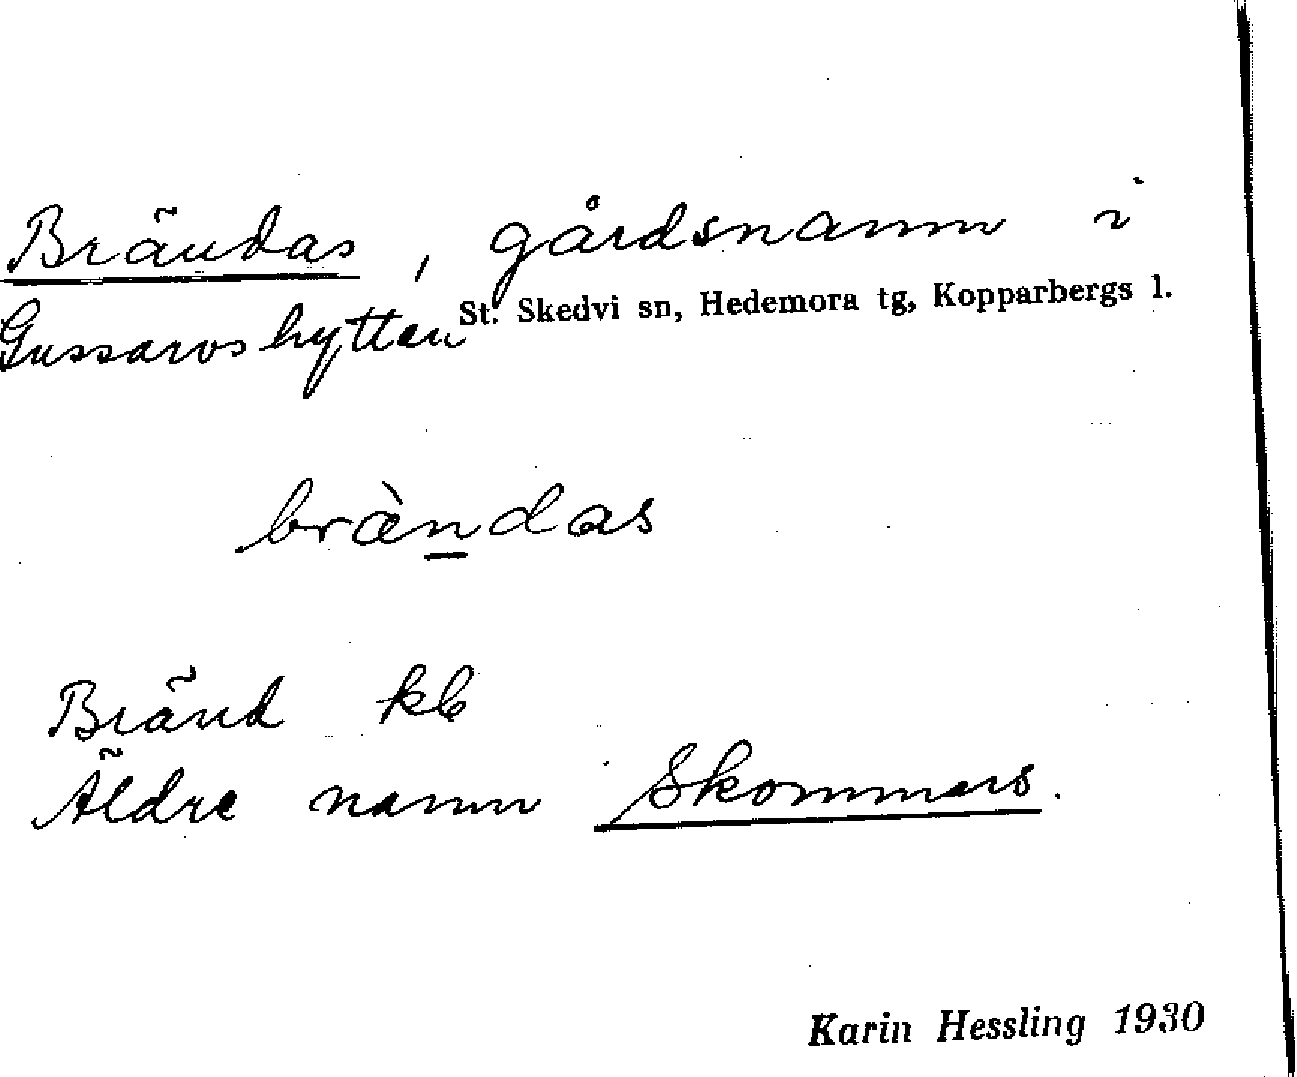 Brändas, gårdsnamn i
Gussarvshyttan St. Skedvi sn, Hedemora tg, Kopparbergs l.
brä̀ndas
Bränd kb
Äldre namn Skommars.
Karin Hessling 1930